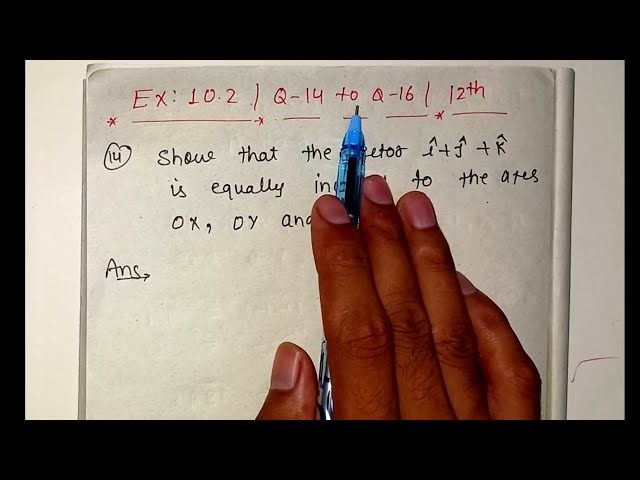 Ex: 10.2 | Q-14 to Q-16 | 12th
14 Show that the î+ĵ+k̂
is equally to the axes
OX, OY and
Ans